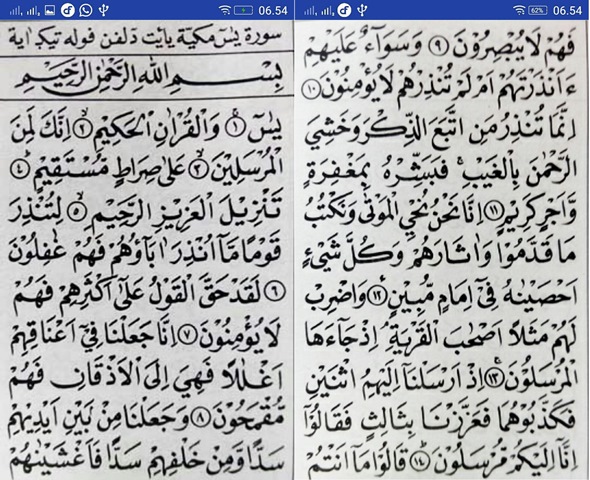 06.54
سورة يٰسٓ مكية
بِسْمِ اللهِ الرَّحْمٰنِ الرَّحِيْمِ
يٰسٓ ۝١ وَالْقُرْاٰنِ الْحَكِيْمِ ۝٢ اِنَّكَ لَمِنَ
الْمُرْسَلِيْنَ ۝٣ عَلٰى صِرَاطٍ مُّسْتَقِيْمٍ ۝٤
تَنْزِيْلَ الْعَزِيْزِ الرَّحِيْمِ ۝٥ لِتُنْذِرَ
قَوْمًا مَّآ اُنْذِرَ اٰبَاؤُهُمْ فَهُمْ غٰفِلُوْنَ
۝٦ لَقَدْ حَقَّ الْقَوْلُ عَلٰٓى اَكْثَرِهِمْ فَهُمْ
لَا يُؤْمِنُوْنَ ۝٧ اِنَّا جَعَلْنَا فِيْٓ اَعْنَاقِهِمْ
اَغْلٰلًا فَهِيَ اِلَى الْاَذْقَانِ فَهُمْ
مُّقْمَحُوْنَ ۝٨ وَجَعَلْنَا مِنْ بَيْنِ اَيْدِيْهِمْ
سَدًّا وَّمِنْ خَلْفِهِمْ سَدًّا فَاَغْشَيْنٰهُمْ
62% 06.54
فَهُمْ لَا يُبْصِرُوْنَ ۝٩ وَسَوَآءٌ عَلَيْهِمْ
ءَاَنْذَرْتَهُمْ اَمْ لَمْ تُنْذِرْهُمْ لَا يُؤْمِنُوْنَ ۝١٠
اِنَّمَا تُنْذِرُ مَنِ اتَّبَعَ الذِّكْرَ وَخَشِيَ
الرَّحْمٰنَ بِالْغَيْبِ ۚ فَبَشِّرْهُ بِمَغْفِرَةٍ
وَّاَجْرٍ كَرِيْمٍ ۝١١ اِنَّا نَحْنُ نُحْيِ الْمَوْتٰى وَنَكْتُبُ
مَا قَدَّمُوْا وَاٰثَارَهُمْ وَكُلَّ شَيْءٍ
اَحْصَيْنٰهُ فِيْٓ اِمَامٍ مُّبِيْنٍ ۝١٢ وَاضْرِبْ
لَهُمْ مَّثَلًا اَصْحٰبَ الْقَرْيَةِ ۘ اِذْ جَآءَهَا
الْمُرْسَلُوْنَ ۝١٣ اِذْ اَرْسَلْنَآ اِلَيْهِمُ اثْنَيْنِ
فَكَذَّبُوْهُمَا فَعَزَّزْنَا بِثَالِثٍ فَقَالُوْٓا
اِنَّآ اِلَيْكُمْ مُّرْسَلُوْنَ ۝١٤ قَالُوْا مَآ اَنْتُمْ